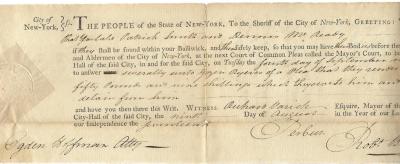 City of
New-York, } ss. THE PEOPLE of the State of NEW-YORK, To the Sheriff of the City of New-York, GREETING:
that you take Patrick Smith and Dennis Mc
if they shall be found within your Bailiwick, and them safely keep, so that you may have their Bod ies before the
and Aldermen of the City of New-York, at the next Court of Common Pleas called the Mayor's Court, to be
Hall of the said City, in and for the said City, on Tuesday the fourth day of September
to answer severally unto of a Plea that they render
fifty Pounds and nine shillings which they owe to him and
detain from him
and have you then there this Writ. WITNESS, Richard Varick Esquire, Mayor of the
City-Hall of the said City, the ninth day of August in the Year of our Lo
our Independence the
Ogden Hoffman Atty
Robt B